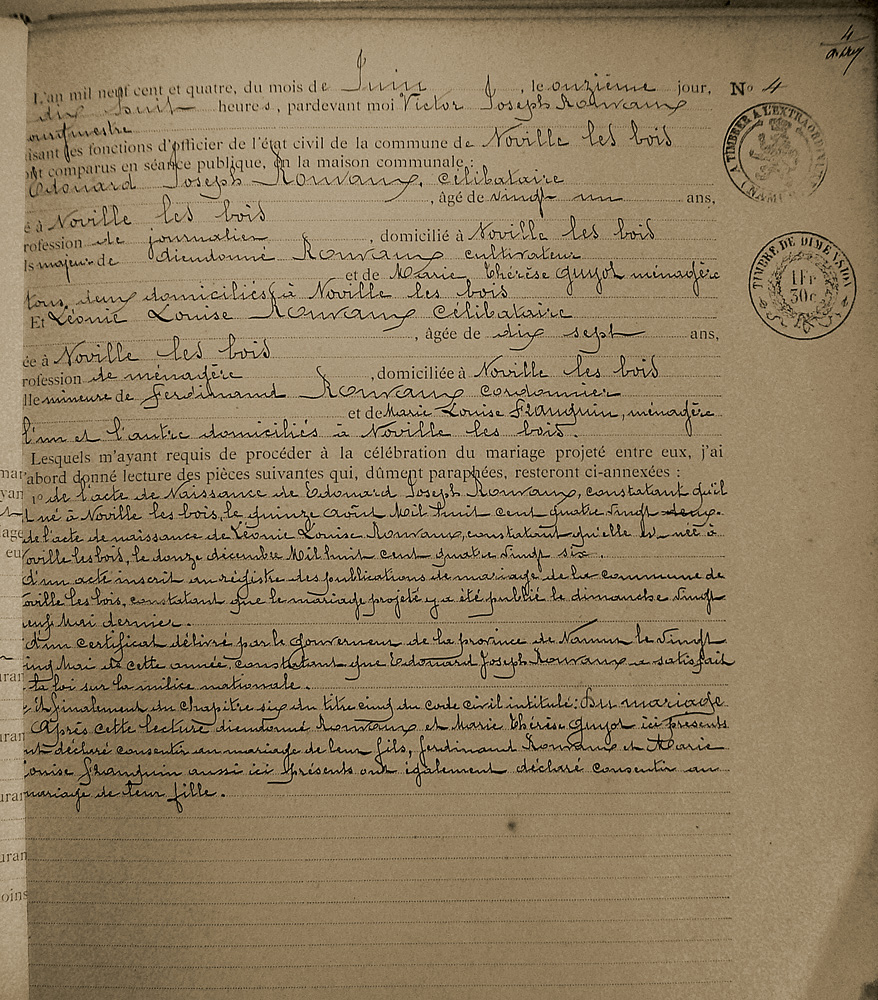 4
L'an mil neuf cent et quatre, du mois de Juin, le onzième jour, No 4
dix huit heures, pardevant moi Victor Joseph Rouvaux
isant les fonctions d'officier de l'état civil de la commune de Noville les bois
ont comparus en séance publique, en la maison communale :
Edouard Joseph Rouvaux, célibataire
, âgé de vingt un ans,
é à Noville les bois
rofession de journalier, domicilié à Noville les bois
ls majeur de dieudonné Rouvaux cultivateur
et de Marie Thérèse Guyot ménagère
tous deux domiciliés à Noville les bois
Et Léonie Louise Rouvaux Célibataire
, âgée de dix sept ans,
ée à Noville les bois
rofession de ménagère, domiciliée à Noville les bois
lle mineure de Ferdinand Rouvaux cordonnier
et de Marie Louise Franquin, ménagère
l'un et l'autre domiciliés à Noville les bois.
Lesquels m'ayant requis de procéder à la célébration du mariage projeté entre eux, j'ai
'abord donné lecture des pièces suivantes qui, dûment paraphées, resteront ci-annexées :
1o de l'acte de Naissance de Edouard Joseph Rouvaux, constatant qu'il
t né à Noville les bois, le quinze août Mil huit cent quatre vingt deux.
de l'acte de naissance de Léonie Louise Rouvaux, constatant qu'elle est née à
oville les bois, le douze décembre Mil huit cent quatre vingt six.
d'un acte inscrit au régistre des publications de mariage de la commune de
oville les bois, constatant que le mariage projeté y a été publié le dimanche vingt
euf Mai dernier.
d'un certificat délivré par le Gouverneur de la province de Namur le vingt
inq Mai de cette année constatant que Edouard Joseph Rouvaux a satisfait
la loi sur la milice nationale.
Et finalement du chapitre six du titre cinq du code civil intitulé: Du mariage
Après cette lecture dieudonné Rouvaux et Marie Thérèse Guyot ici présents
nt déclaré consentir au mariage de leur fils, ferdinand Rouvaux et Marie
ouise franquin aussi ici présents ont également déclaré consentir au
mariage de leur fille.
A TIMBRER A L'EXTRAORDINAIRE
(NAMUR)
TIMBRE DE DIMENSION
1Fr
30c